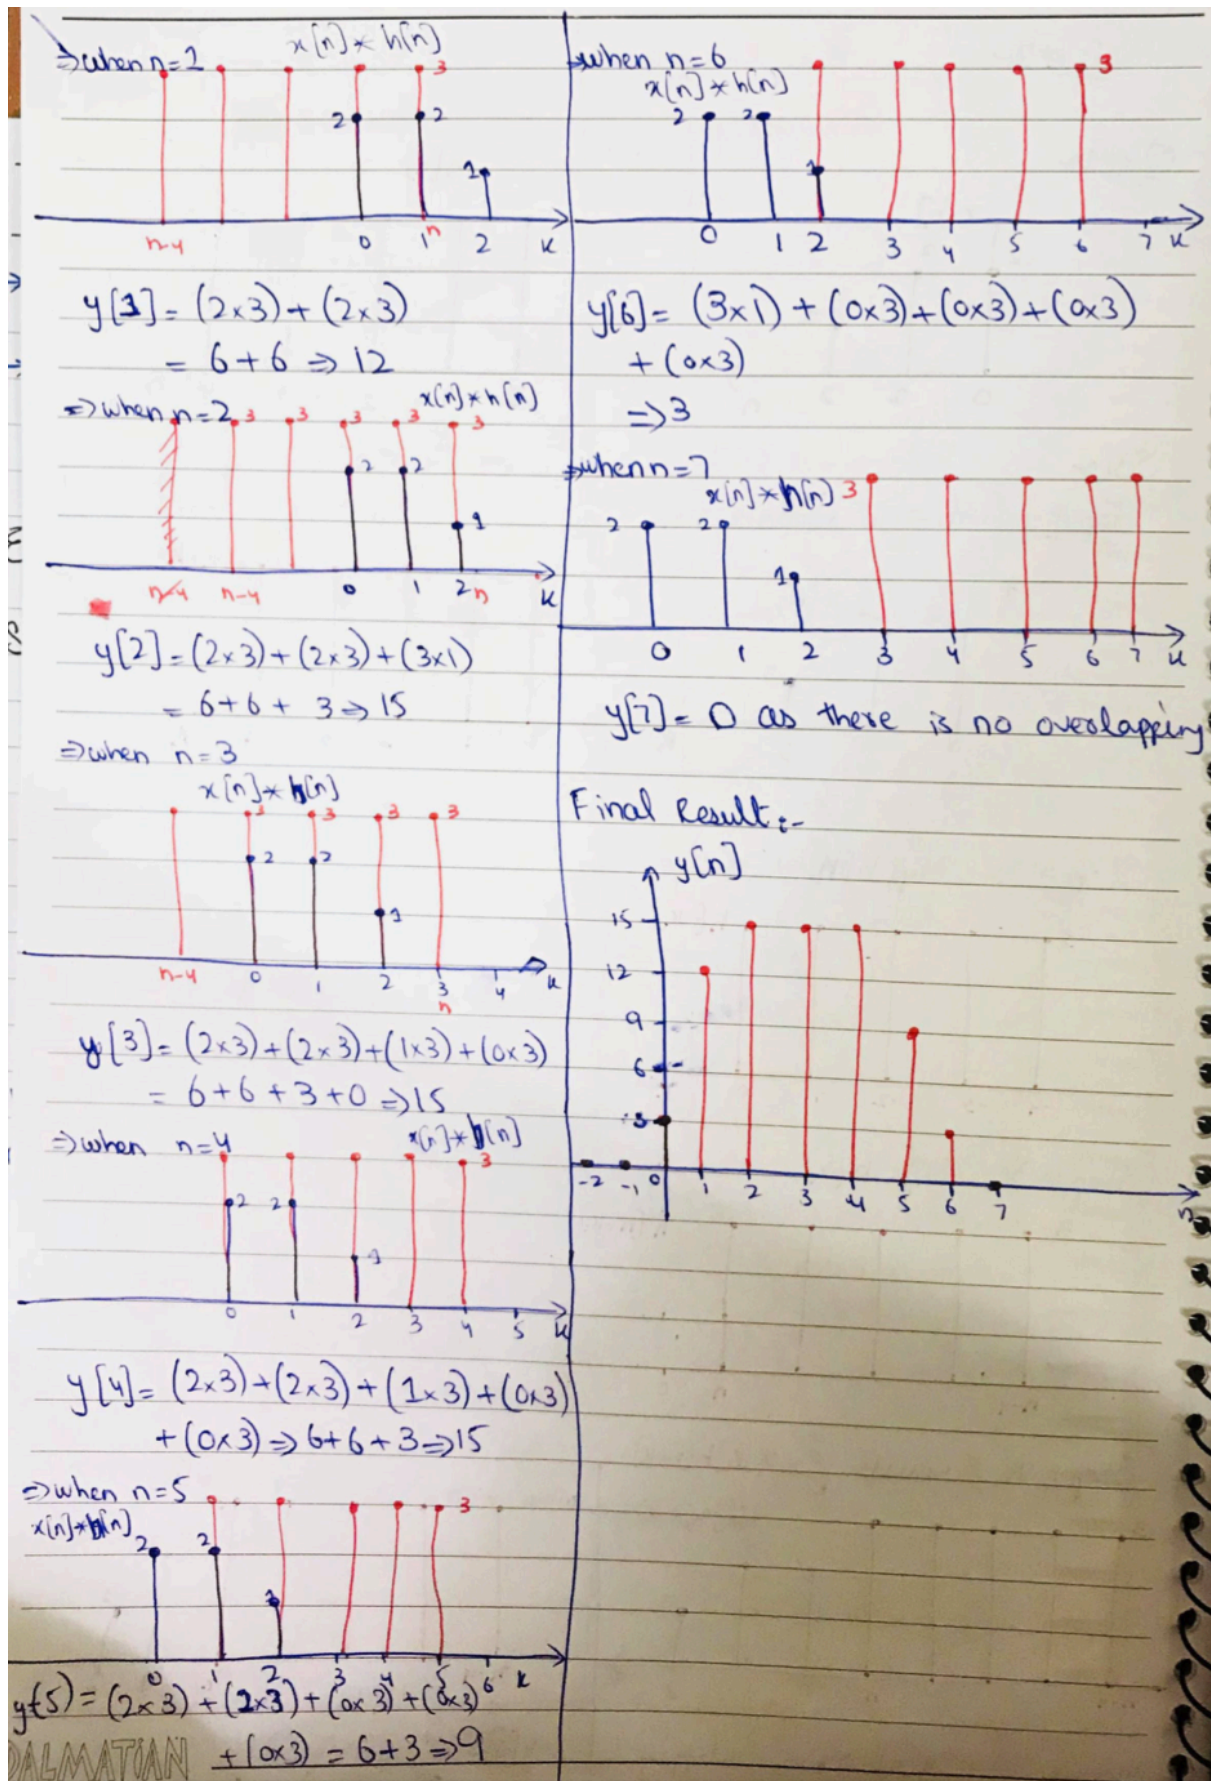 ⇒when n=1
x[n]*h[n]
3
2
2
1
n-4
0
1
n
2
k
y[1]= (2×3)+(2×3)
= 6+6 ⇒ 12
⇒when n=2
x[n]*h[n]
3 3 3 3 3
2 2
1
n-4 n-4 0 1 2 n k
y[2]=(2×3)+(2×3)+(3×1)
= 6+6+ 3⇒15
⇒when n=3
x[n]*h[n]
3 3 3 3
2 2
1
n-4 0 1 2 3 4 k
n
y[3]=(2×3)+(2×3)+(1×3)+(0×3)
= 6+6+3+0⇒15
⇒when n=4
x[n]*h[n]
3
2 2
1
0 1 2 3 4 5 k
y[4]= (2×3)+(2×3)+(1×3)+(0×3)
+(0×3)⇒6+6+3⇒15
⇒when n=5
3
x[n]*h[n]
2 2
1
0 1 2 3 4 5 6 k
y(5)=(2×3)+(2×3)+(0×3)+(0×3)
+(0×3) = 6+3⇒9
DALMATIAN
⇒when n=6
3
x[n]*h[n]
2 2
1
0 1 2 3 4 5 6 7 k
y[6]= (3×1)+(0×3)+(0×3)+(0×3)
+(0×3)
⇒3
⇒when n=7
x[n]*h[n] 3
2 2
1
0 1 2 3 4 5 6 7 k
y[7]= 0 as there is no overlapping
Final Result:-
y[n]
15
12
9
6
3
-2 -1 0 1 2 3 4 5 6 7 n